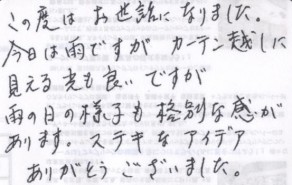 この度は お世話に なりました。
今日は雨ですが カーテン越しに
見える光も良いですが
雨の日の様子も 格別な感が
あります。ステキな アイデア
ありがとう ございました。